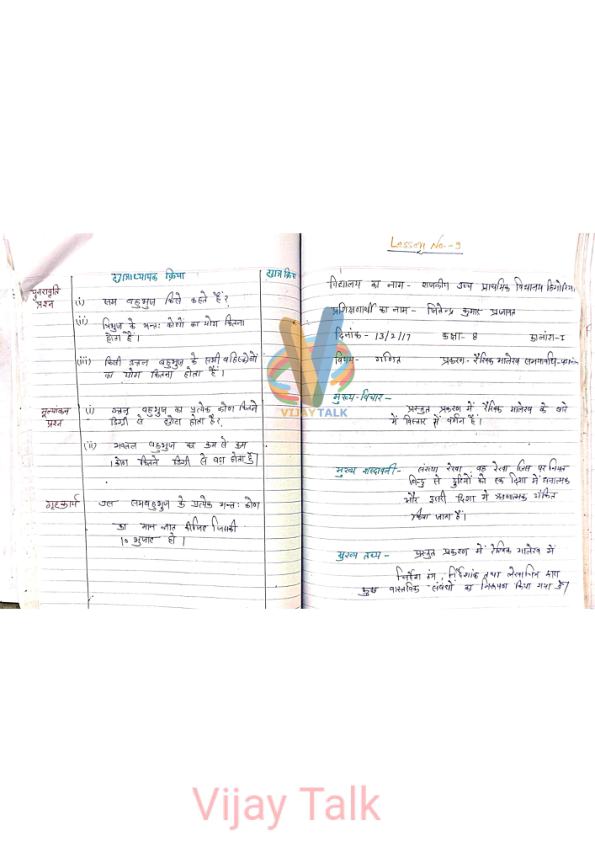 छात्राध्यापक क्रिया
छात्र क्रि
पुनरावृति
प्रश्न
(i) सम बहुभुज किसे कहते हैं?
(ii) त्रिभुज के अन्तः कोणों का योग कितना
होता है।
(iii) किसी उत्तल बहुभुज के सभी बहिष्कोणों
का योग कितना होता है।
मूल्यांकन
प्रश्न
(i) उत्तल बहुभुज का प्रत्येक कोण कितने
डिग्री से छोटा होता है?
(ii) अवतल बहुभुज का कम से कम
1 कोण कितने डिग्री से बड़ा होता है।
गृहकार्य
उस समबहुभुज के प्रत्येक अन्तः कोण
का मान ज्ञात कीजिए जिसकी
10 भुजाएं हो।
Lesson No.-9
विद्यालय का नाम - राजकीय उच्च प्राथमिक विद्यालय
प्रशिक्षणार्थी का नाम - जितेन्द्र कुमार प्रजापत
दिनांक - 13/2/17 कक्षा - 8 कालांश-I
विषय - गणित प्रकरण - रैखिक आलेख समयावधि-
मुख्य-विचार -
प्रस्तुत प्रकरण में रैखिक आलेख के बारे
में विस्तार से वर्णन है।
मुख्य शब्दावली - संख्या रेखा वह रेखा जिस पर नियत
बिन्दु से दुरियों को एक दिशा में धनात्मक
और दूसरी दिशा में ऋणात्मक अंकित
किया जाता है।
मुख्य तथ्य - प्रस्तुत प्रकरण में रैखिक आलेख में
निर्देश तंत्र, निर्देशांक तथा लेखाचित्र द्वारा
कुछ वास्तविक संबंधों का निरूपण किया गया है।
VIJAY TALK
Vijay Talk